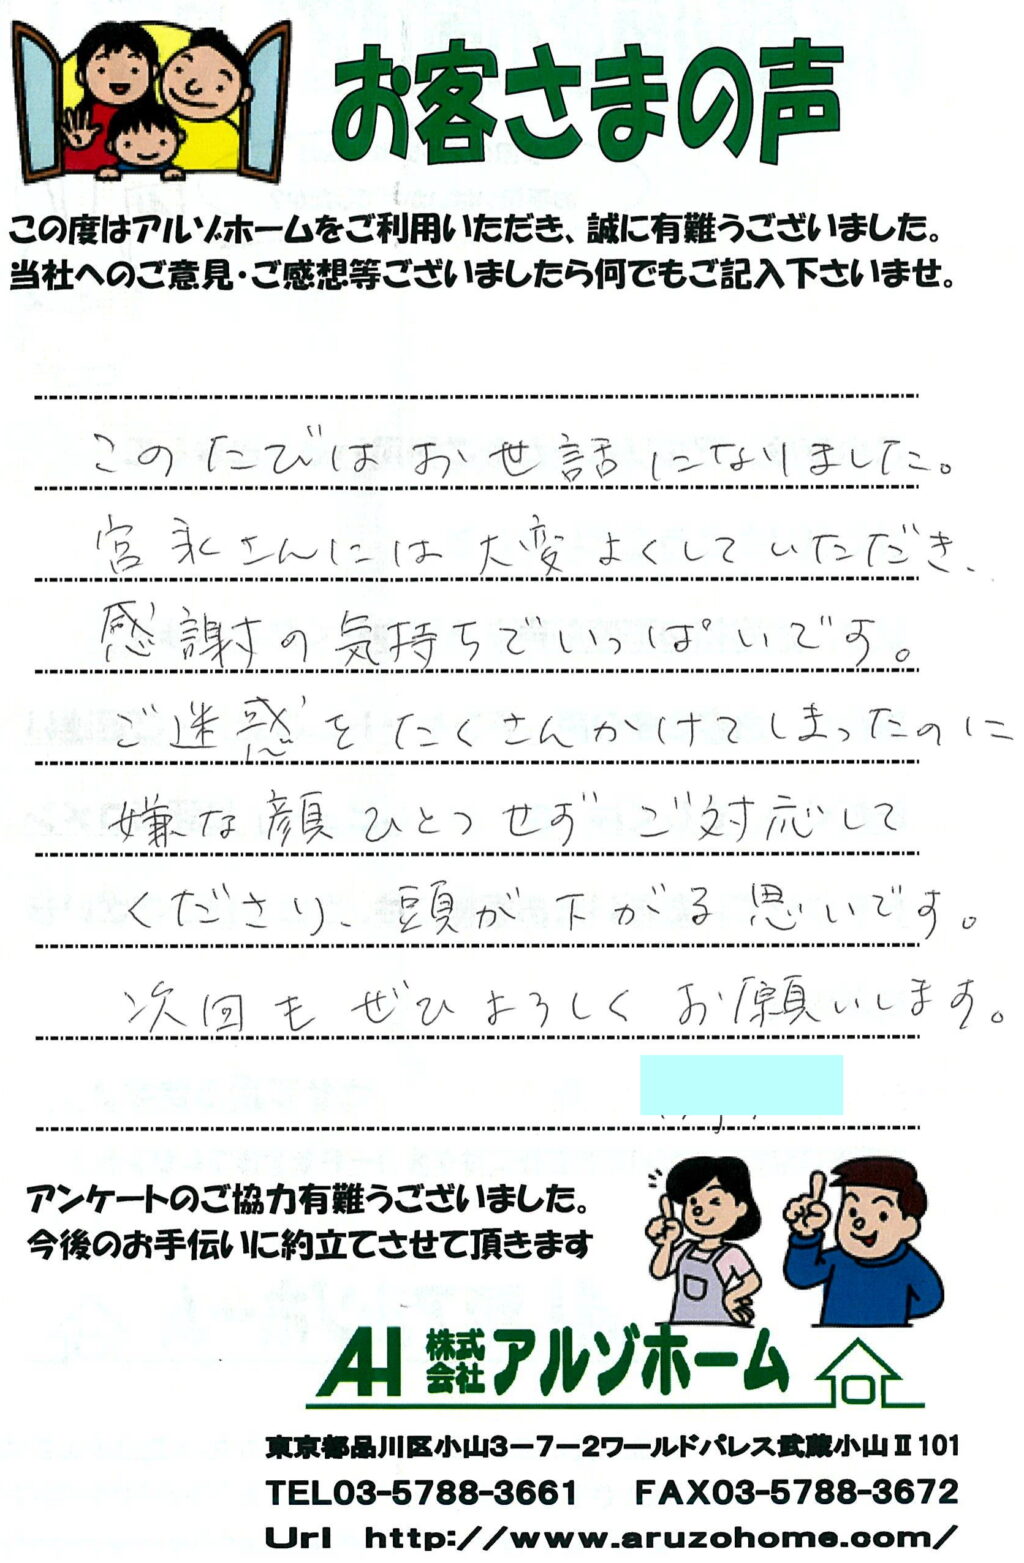 お客さまの声
この度はアルゾホームをご利用いただき、誠に有難うございました。
当社へのご意見・ご感想等ございましたら何でもご記入下さいませ。
このたびはお世話になりました。
宮永さんには大変よくしていただき、
感謝の気持ちでいっぱいです。
ご迷惑をたくさんかけてしまったのに
嫌な顔ひとつせずご対応して
くださり、頭が下がる思いです。
次回もぜひよろしくお願いします。
アンケートのご協力有難うございました。
今後のお手伝いに約立てさせて頂きます
AH 株式会社 アルゾホーム
東京都品川区小山3-7-2ワールドパレス武蔵小山Ⅱ101
TEL03-5788-3661 FAX03-5788-3672
Url http://www.aruzohome.com/